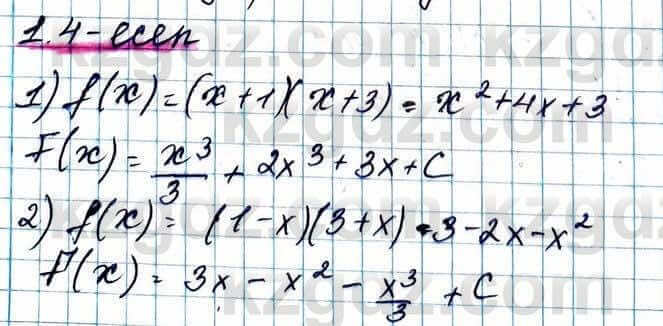 1.4-есеп
1) f(x) = (x+1)(x+3) = x² + 4x + 3
F(x) = x³/3 + 2x³ + 3x + C
2) f(x) = (1-x)(3+x) = 3-2x-x²
F(x) = 3x - x² - x³/3 + C